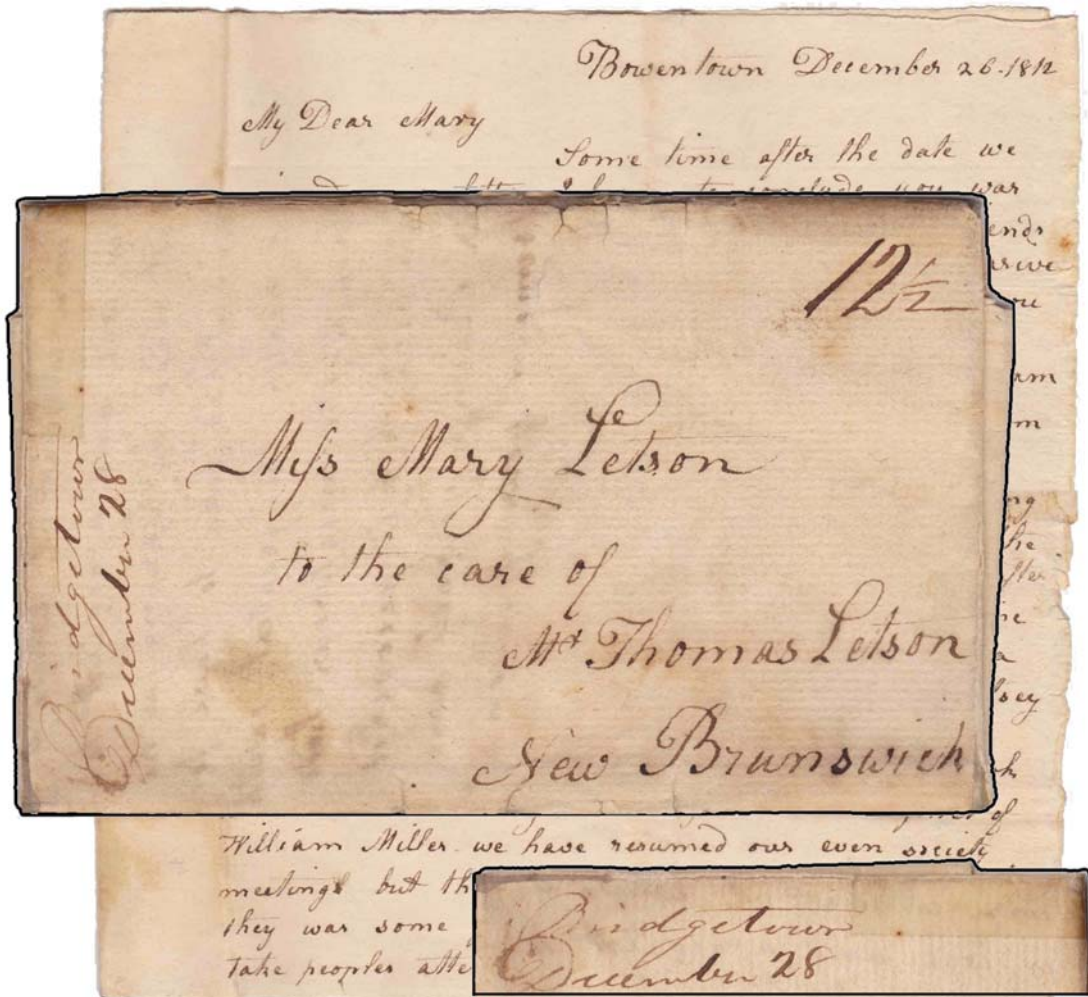 Bowentown December 26-1812
My Dear Mary
Some time after the date we
to conclude you was
ends
12½
Miss Mary Letson
to the care of
Mr Thomas Letson
New Brunswick
Bridgetown
December 28
William Miller we have resumed our even society
meetings but th
they was some
take peoples atte
Bridgetown
December 28